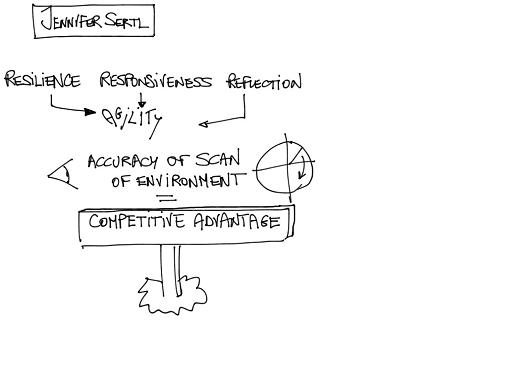 JENNIFER SERTL
RESILIENCE RESPONSIVENESS REFLECTION
AGILITY
ACCURACY OF SCAN
OF ENVIRONMENT
=
COMPETITIVE ADVANTAGE